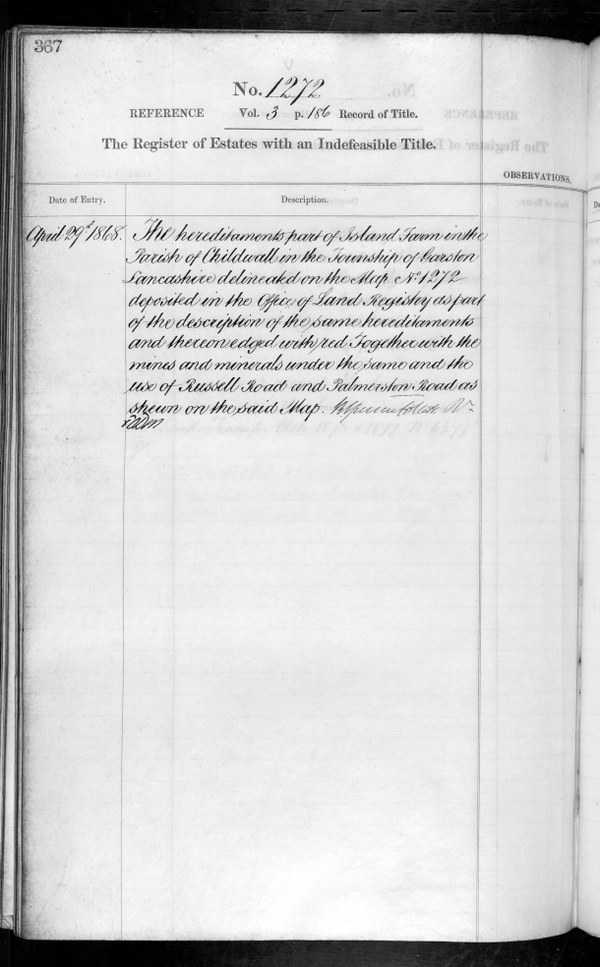 367
No. 1272
REFERENCE Vol. 3 p. 186 Record of Title.
The Register of Estates with an Indefeasible Title.
OBSERVATIONS.
Date of Entry.
Description.
April 29th 1868.
The hereditaments part of Island Farm in the
Parish of Childwall in the Township of Garston
Lancashire delineated on the Map No. 1272
deposited in the Office of Land Registry as part
of the description of the same hereditaments
and thereon edged with red Together with the
mines and minerals under the same and the
use of Russell Road and Palmerston Road as
shewn on the said Map.